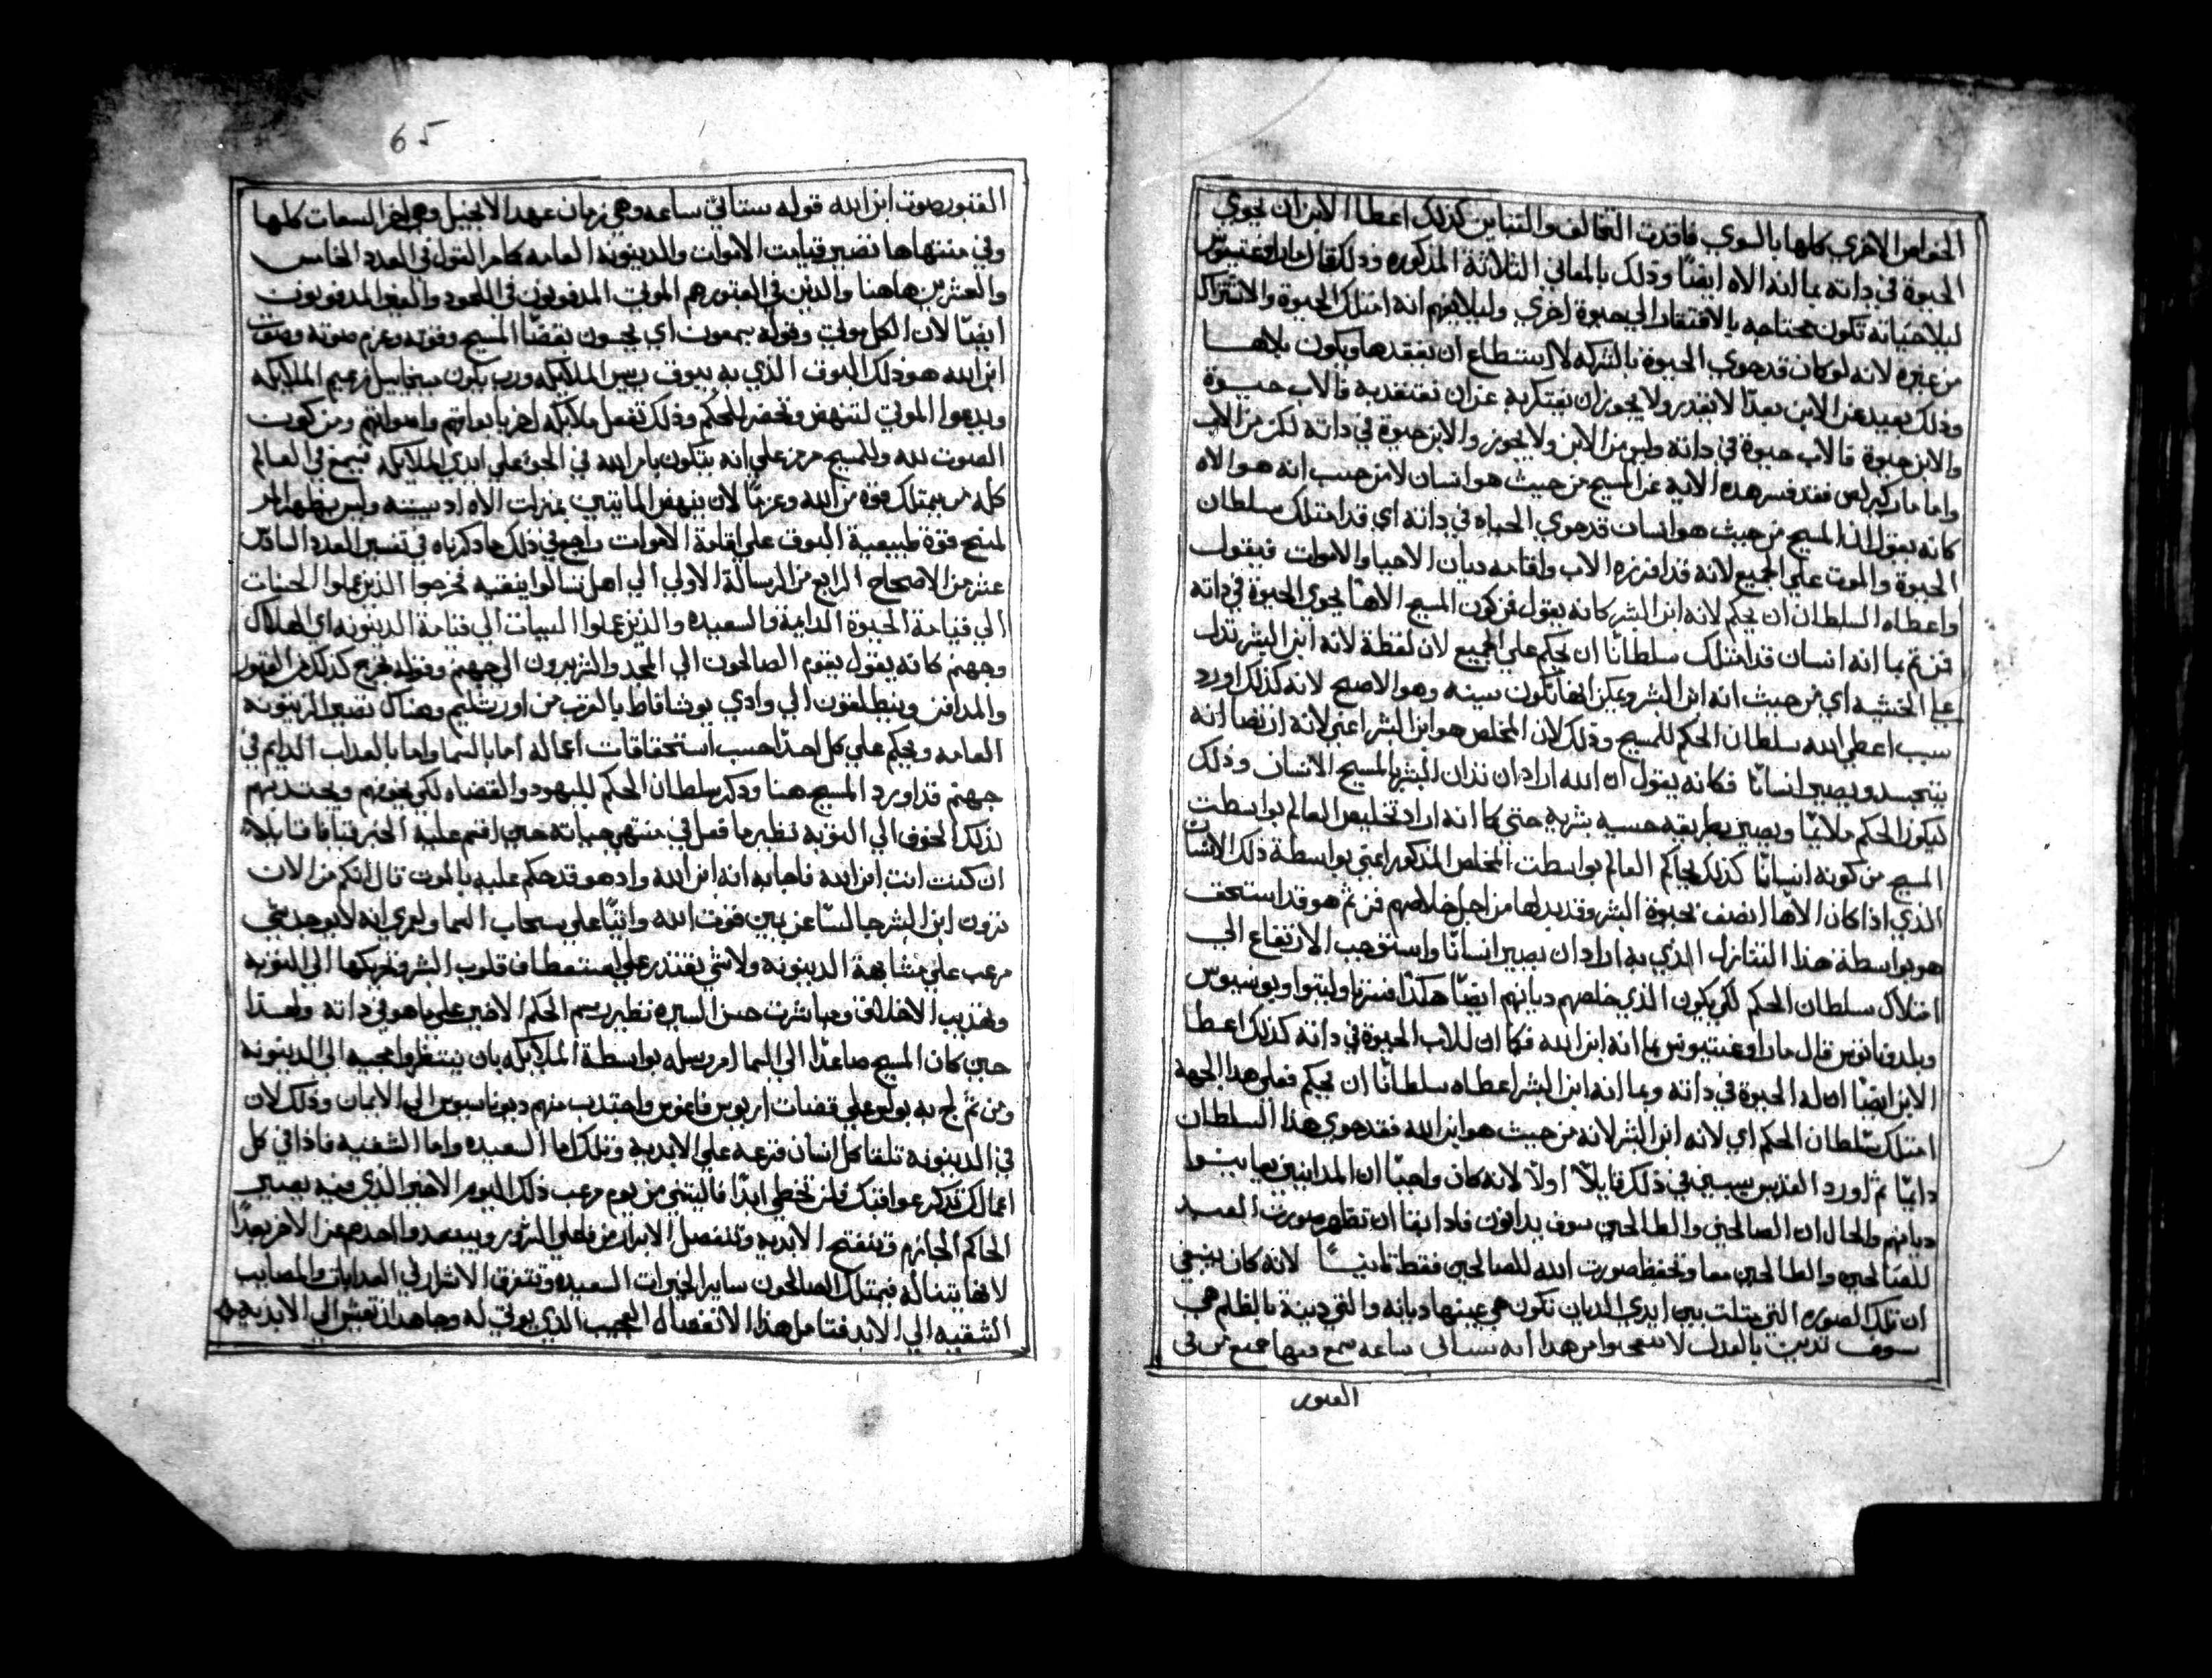 الخواص الاخري كلها بالسوي فاقدت التخالف والتباين كذلك اعطا الابن ان يحوي
الحيوة في داته بما انه الاه ايضًا وذلك بالمعاني الثلاثة المذكوره وذلك قال ماراوغستينوس
ليلا حياته تكون محتاجه بالافتقار الي حيوة اخري وليلا يفهم انه امتلك الحيوة والاشتراك
من غيره لانه لو كان قد حوي الحيوة بالشركه لا استطاع ان يفقدها ويكون بلاها
وذلك بعيد عن الابن بعدًا لا يقدر ولا يجوز ان يفتكر به عن ان يعتقد به فالاب حيوة
والابن حيوة فالاب حيوة في داته وليس من الابن ولا يجوز والابن حيوة في داته لكن من الاب
واما مار كيرلص فقد فسر هذه الاية عن المسيح من حيث هو انسان لا من حيث انه هو الاه
كانه يقول ان المسيح من حيث هو انسان قد حوي الحياه في داته اي قد امتلك سلطان
الحيوة والموت علي الجميع لانه قد افرزه الاب واقامه ديان الاحيا والاموات فيقول
واعطاه السلطان ان يحكم لانه ابن البشر كانه يقول فمن كون المسيح الاهًا يحوي الحيوة في داته
فمن ثم بما انه انسان قد امتلك سلطانًا ان يحكم علي الجميع لان لفظة لانه ابن البشر تدل
علي الحيثيه اي من حيث انه ابن البشر ويمكن انها تكون سببيه وهو الاصح لانه كذلك اورد
سبب اعطي الله سلطان الحكم للمسيح وذلك لان المخلص هو ابن البشر اعني لانه ارتضا انه
يتجسد ويصير انسانًا فكانه يقول ان الله اراد ان تدان البشر بالمسيح الانسان وذلك
ليكون الحكم ملايمًا ويصير بطريقه حسيه بشريه حتي كما انه اراد تخليص العالم بواسطت
المسيح من كونه انسانًا كذلك يحاكم العالم بواسطت المخلص المذكور اعني بواسطة ذلك الانسان
الذي اذ كان الاهًا اتصف بحيوة البشر وقد بدلها من اجل خلاصهم فمن ثم هو قد استحق
هو بواسطة هذا التنازل الذي به اراد ان يصير انسانًا واستوجب الارتفاع الي
امتلاك سلطان الحكم لكي يكون الذي خلصهم ديانهم ايضًا هكذا فسر
قال ماراوغستينوس بما انه ابن الله فكما ان للاب الحيوة في داته كذلك اعطا
الابن ايضًا ان له الحيوة في داته وبما انه ابن البشر اعطاه سلطانًا ان يحكم فعلي هذا الجهة
امتلك سلطان الحكم اي لانه ابن البشر لانه من حيث هو ابن الله فقد حوي هذا السلطان
دايمًا ثم اورد القديس سببين في ذلك قايلًا اولًا لانه كان واجبًا ان المدانين يعاينوا
ديانهم والحال ان الصالحين والطالحين سوف يدانون فاذا بقا ان تظهر صورت العبد
للصالحين والطالحين معا وتحفظ صورت الله للصالحين فقط ثانيًا لانه كان ينبغي
ان تلك الصوره التي مثلت بين ايدي الديان تكون هي عينها ديانه والتي دينة بالظلم هي
سوف تدين بالعدل لا تتعجبوا من هذا انه ستاتي ساعه يسمع فيها جميع من في
القبور
65
القبور صوت ابن الله قوله ستاتي ساعه وهي زمان عهد الانجيل وهي اخر الساعات كلها
وفي منتهاها تصير قيامت الاموات والدينونه العامه كما مر القول في العدد الخامس
والعشرين هاهنا والدين في القبور هم الموتي المدفونون في اللحود والغير المدفونون
ايضًا لان الكل موتي وقوله يسمعون اي يحسون بقضا المسيح وقوته وعزم صوته وصوت
ابن الله هو ذلك البوق الذي به يبوق رييس الملايكه ورب يكون ميخاييل زعيم الملايكه
ويدعوا الموتي لتنهض وتحضر للحكم وذلك تفعل ملايكه اخر بابواقهم واصواتهم ومن كون
الصوت لله والمسيح مرمز علي انه يتكون بامر الله في الجو علي ايدي الملايكه فيسمع في العالم
كله من يمتلك قوه من الله وعزمًا لان ينهض المايتين بمنزلت الاه اد بيته وليس يظهر انه
لمنح قوة طبيعية البوق علي اقامة الاموات راجع في ذلك ما ذكرناه في تفسير العدد السادس
عشر من الاصحاح الرابع من الرسالة الاولي الي اهل تسالونيقيه فخرجوا الذين عملوا الحسنات
الي قيامة الحيوة الدايمة والسعيده والذين عملوا السيات الي قيامة الدينونه اي الهلاك
وجهنم كانه يقول يقوم الصالحون الي المجد والشريرون الي جهنم وقوله فخرج كذلك من القبور
والمدافن وينطلقون الي وادي يوشافاط بالقرب من اورشليم وهناك تصير الدينونه
العامه ويحكم علي كل احدًا حسب استحقاقات اعماله اما بالسما واما بالعداب الدايم في
جهنم قد اورد المسيح هنا ودكر سلطان الحكم لليهود والقضاه لكي يخوفهم ويجتدبهم
بذلك الخوف الي التوبه نظير ما فعل في منتهي حياته حين اقسم عليه الحبر قيافا قايلا
ان كنت انت ابن الله فاجابه انه ابن الله واد هو قد حكم عليه بالموت قال انكم من الان
ترون ابن البشر جالسًا عن يمين قوت الله واتيًا علي سحاب السما ولعمري انه لا يوجد شي
مرعب علي مشابهة الدينونه ولا شي يقتدر علي استعطاف قلوب البشر وتحريكها الي التوبه
وتهذيب الاخلاق ومباشرت حسن السيره نظير رسم الحكم الاخير علي ما هو في داته ولهدا
حين كان المسيح صاعدًا الي السما امر رسله بواسطة الملايكه بان ينتظروا مجيه الي الدينونه
ومن ثم لج به بولس علي قضات اريوس فاغوس واجتدب منهم ديوناسيوس الي الايمان وذلك لان
في الدينونه تلقا كل انسان قرعه علي الابدية وتلك اما السعيده واما الشقيه فاذا في كل
اعمالك تذكر عواقبك فلن تخطي ابدًا فاليتني من يوم مرعب ذلك اليوم الاخير الذي فيه يصير
الحاكم الجازم وتنفتح الابديه وتنفصل الابرار من فعلي الشرور ويبتعد واحدهم عن الاخر بعدًا
لا نهايت له فيمتلك الصالحون ساير الخيرات السعيده وتتغرق الاشرار في العدابات والمصايب
الشقيه الي الابد فتامل هذا الانفصال العجيب الذي يوتي له وجاهد ان تعيش الي الابديه